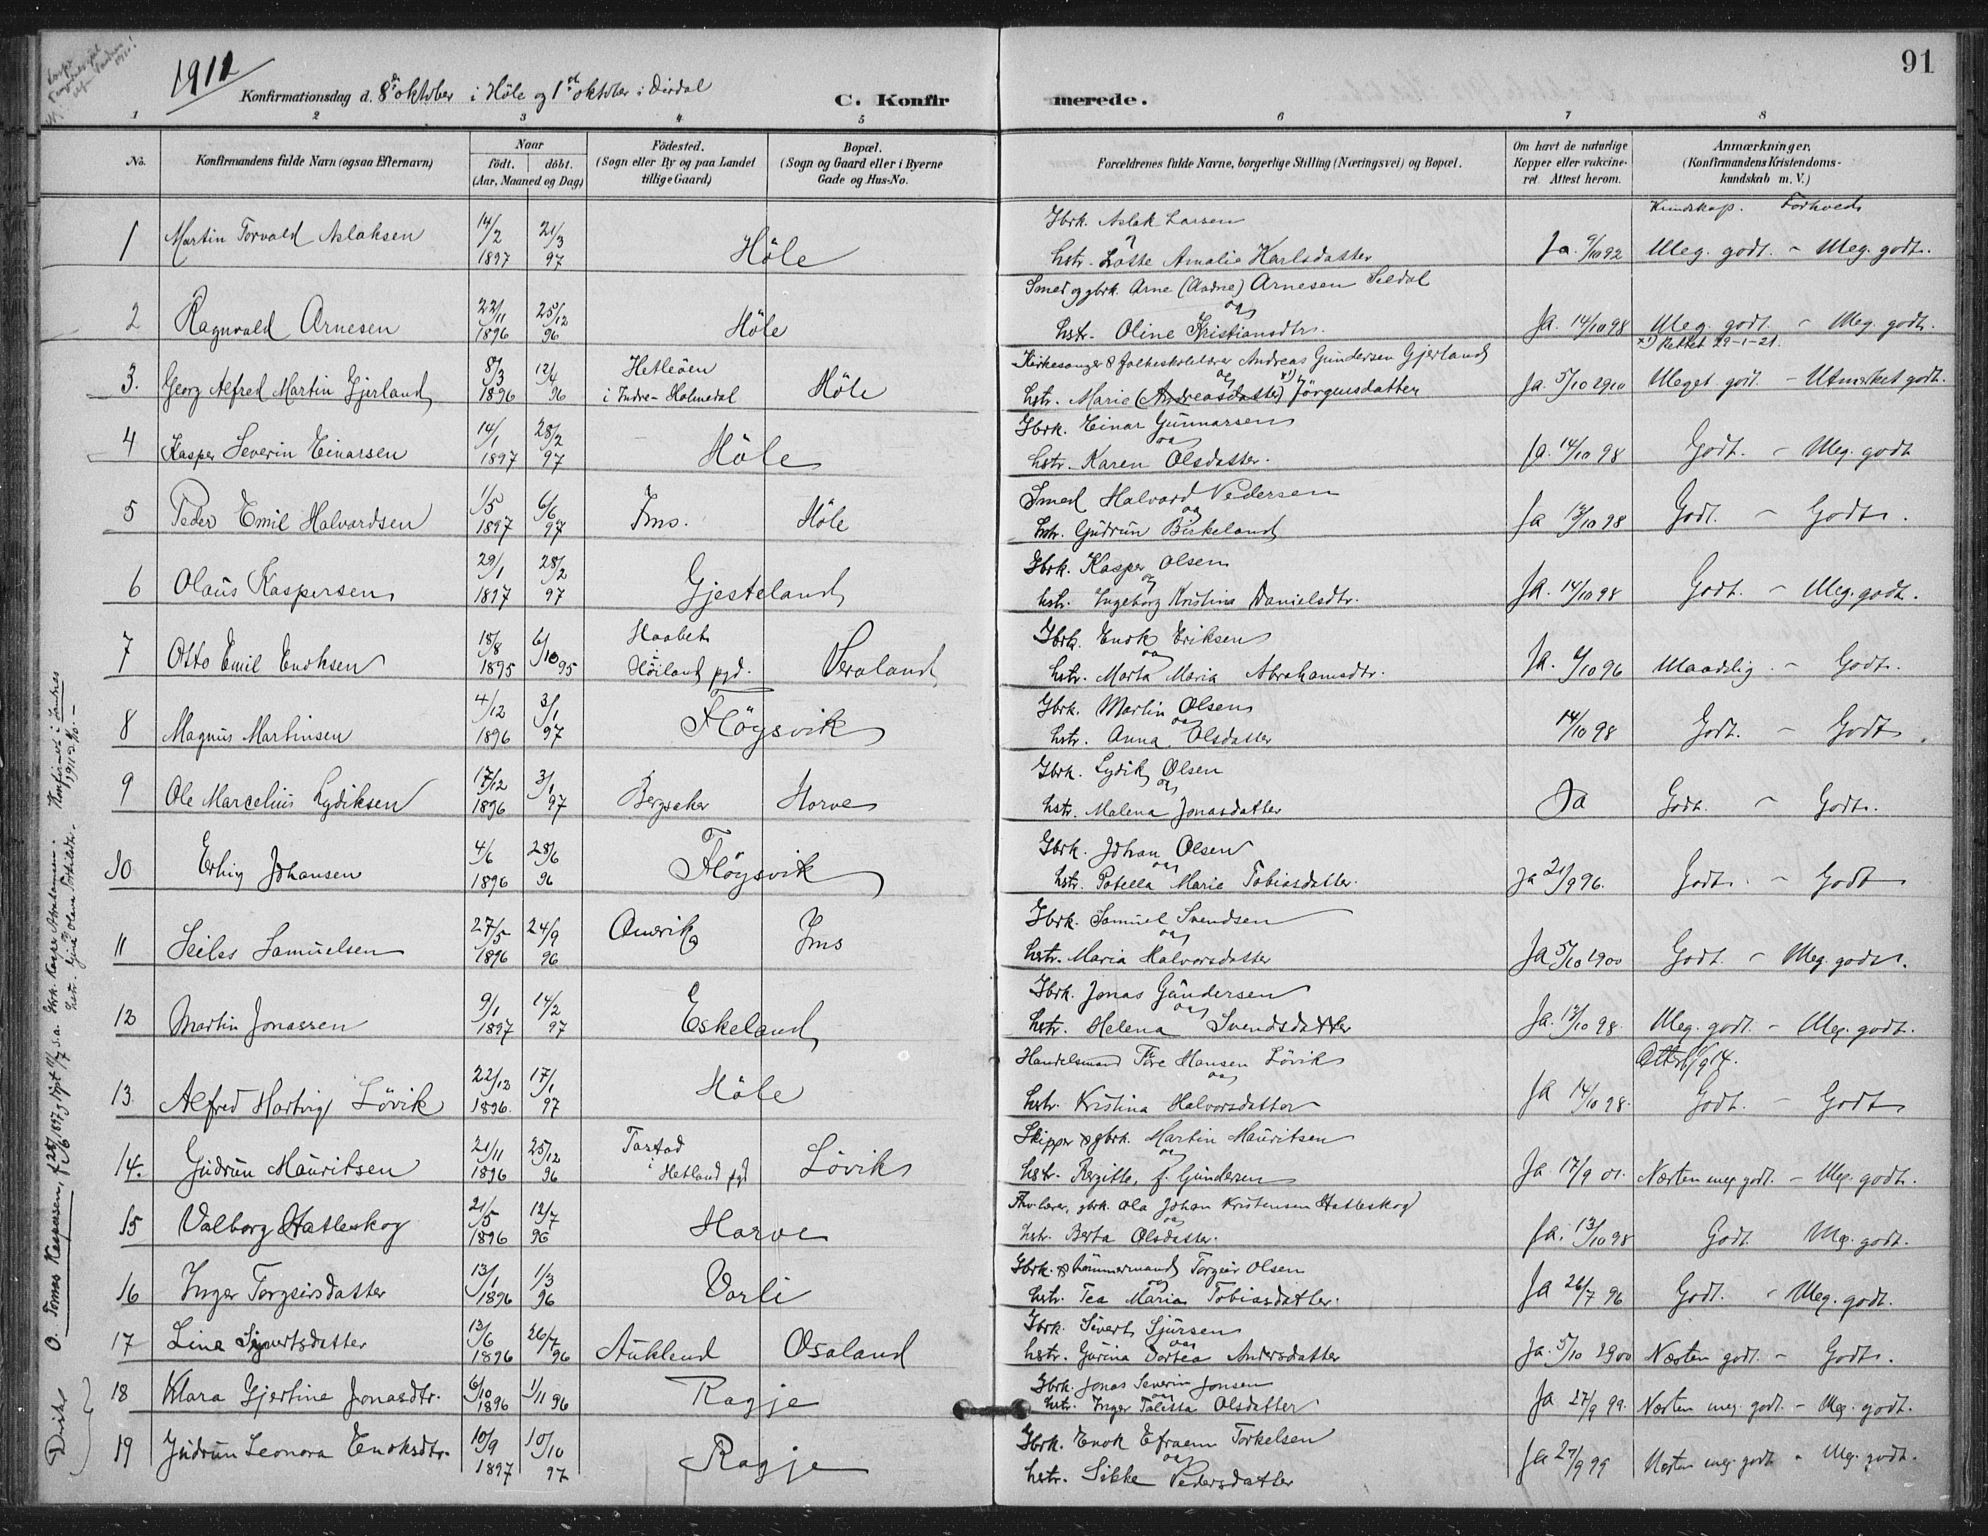 91
1911
Konfirmationsdag d. 8de oktober i Höle og 1ste oktober i Dirdal
C. Konfirmerede.
1 2 3 4 5 6 7 8
No. Konfirmandens fulde Navn (ogsaa Efternavn) Naar födt. döbt. (Aar, Maaned og Dag) Födested. (Sogn eller By og paa Landet tillige Gaard) Bopæl. (Sogn og Gaard eller i Byerne Gade og Hus-No. Forældrenes fulde Navne, borgerlige Stilling (Næringsvei) og Bopæl. Om havt de naturlige Kopper eller vakcineret. Attest herom. Anmærkninger. (Konfirmandens Kristendomskundskab m. V.)
Kundskap. Forhved
Gbrk. Aslak Larsen
1 Martin Torvald Aslaksen 14/2 1897 21/3 97 Höle og hstr. Lötte Amalie Karlsdatter Ja. 6/10 92 Meg. godt. - Meg. godt.
Smed og gbrk. Arne (Aadne) Arnesen Seldal
2 Ragnvald Arnesen 22/11 1896 25/12 96 Höle og hstr. Oline Kristiansdtr. Ja. 14/10 98 Meg. godt. - Meg. godt.
x) Rettet 29-1-21.
Kirkesanger & folkeskolelærer Andreas Gundersen Gjerland
3. Georg Alfred Martin Gjerland 8/3 1896 12/4 96 Hetleöen i Indre-Holmedal Höle og hstr. Marie (Andreasdatter) x) Jörgensdatter Ja 5/10 1910 Meget godt. - Utmerket godt.
Gbrk. Einar Gunnarsen
4 Kasper Severin Einarsen 14/1 1897 28/2 97 Höle og hstr. Karen Olsdatter. Ja. 14/10 98 Godt. - Meg. godt
Smed Halvard Pedersen
5 Peder Emil Halvardsen 1/5 1897 6/6 97 Ims. Höle og hstr. Gudrun Birkeland Ja 13/10 98 Godt. - Godt.
Gbrk. Kasper Olsen
6 Olaus Kaspersen 29/1 1897 28/2 97 Gjesteland og hstr. Ingeborg Kristina Danielsdtr. Ja. 14/10 98 Godt. - Meg. godt.
Gbrk. Enok Eriksen
7 Otto Emil Enoksen 18/8 1895 6/10 95 Haabet i Höiland pgd. Veraland og hstr. Marta Maria Abrahamsdtr. Ja. 6/10 96 Maadelig - Godt.
Gbrk. Martin Olsen
8 Magnus Martinsen 4/12 1896 3/1 97 Flöysvik og hstr. Anna Olsdatter 14/10 98 Godt. - Godt
Gbrk. Lydik Olsen
9 Ole Marcelius Lydiksen 17/12 1896 3/1 97 Bergsaker Horve og hstr. Malena Jonasdatter Ja Godt. - Godt.
Gbrk. Johan Olsen
10 Erling Johansen 4/6 1896 28/6 96 Flöysvik og hstr. Potella Marie Tobiasdatter. Ja 21/9 96. Godt. - Godt
Gbrk. Samuel Svendsen
11 Seiles Samuelsen 27/5 1896 24/9 96 Amerika Ims og hstr. Maria Halvorsdatter Ja 5/10 1900 Godt. - Meg. godt.
Gbrk. Jonas Gundersen
12 Martin Jonassen 9/1 1897 14/2 97 Eskeland og hstr. Helena Svendsdatter Ja. 13/10 98. Meg. godt. - Meg. godt.
Handelsmand Tore Hansen Lövik
13. Alfred Hartvig Lövik 22/12 1896. 17/1 97 Höle og hstr. Kristina Halvorsdatter Ja 14/10 98. Godt. - Godt
Skipper & gbrk. Martin Mauritsen
14. Gudrun Mauritsen 21/11 1896 25/12 96 Tastad i Hetland pgd Lövik og hstr. Bergitte, f. Gundersen Ja 17/9 01. Næsten meg. godt. - Meg. godt.
gbrk. Ola Johan Kristensen Hatleskog
15 Valborg Hatleskog 21/5 1896 12/7 96 Horve og hstr. Berta Olsdatter. Ja. 13/10 98 Godt. Meg. godt.
Gbrk. & tömmermand Torgeir Olsen
16 Inger Torgeirsdatter 13/1 1896 1/3 96 Vorli og hstr. Tea Maria Tobiasdatter. Ja 26/7 96 Godt. - Meg. godt.
Gbrk. Sivert Sjursen
17 Line Sivertsdatter 13/6 1896 26/7 96 Auklend Osaland og hstr. Gurina Dortea Andersdatter Ja. 5/10 1900 Næsten godt. - Godt.
Gbrk. Jonas Severin Jonsen
18 Klara Gjertine Jonasdtr. 6/10 1896 1/11 96 Ragje og hstr. Inger Talitta Olsdatter Ja 27/9 99. Næsten meg. godt. - Meg. godt.
Gbrk. Enok Efraem Torkelsen
19 Gudrun Leonora Enoksdtr. 10/9 1897 10/10 97 Ragje og hstr. Sikke Pedersdatter Ja 27/9 99 Næsten meg. godt - Meg. godt.
Dirdal
O. Tomas Kaspersen, f. 25/6 1897 döpt 11/7 s.a. Gbrk. Kasper Abrahamsen. Konfirmert i Sandnes
hstr. Gina Olava Torkildsdtr. 1911